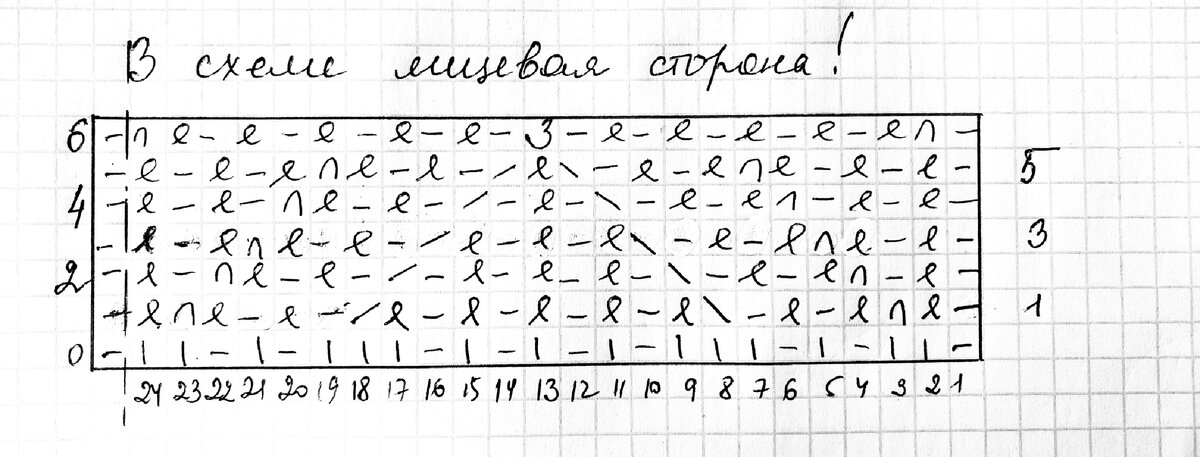 В схеме лицевая сторона!
6 - ∩ e - e - e - e - e - 3 - e - e - e - e - e ∩ -
- e - e - e ∩ e - e - / e \ - e - e ∩ e - e - e - 5
4 - e - e - ∩ e - e - / - e - \ - e - e ∩ - e - e -
- e - e ∩ e - e - / e - e - e \ - e - e ∩ e - e - 3
2 - e - ∩ e - e - / - e - e - e - \ - e - e ∩ - e -
- e ∩ e - e - / e - e - e - e - e \ - e - e ∩ e - 1
0 - | | - | - | | | - | - | - | - | | | - | - | | -
24 23 22 21 20 19 18 17 16 15 14 13 12 11 10 9 8 7 6 5 4 3 2 1